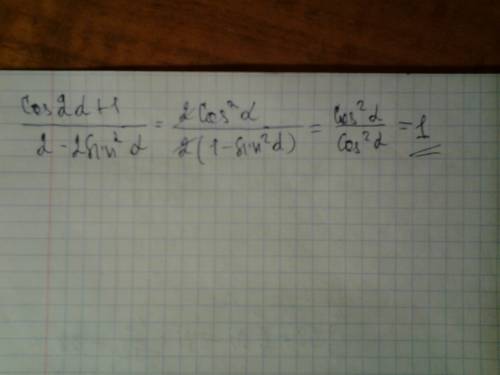 (cos2α+1)/(2-2sin²α) = (2cos²α)/(2(1-sin²α)) = cos²α/cos²α = 1